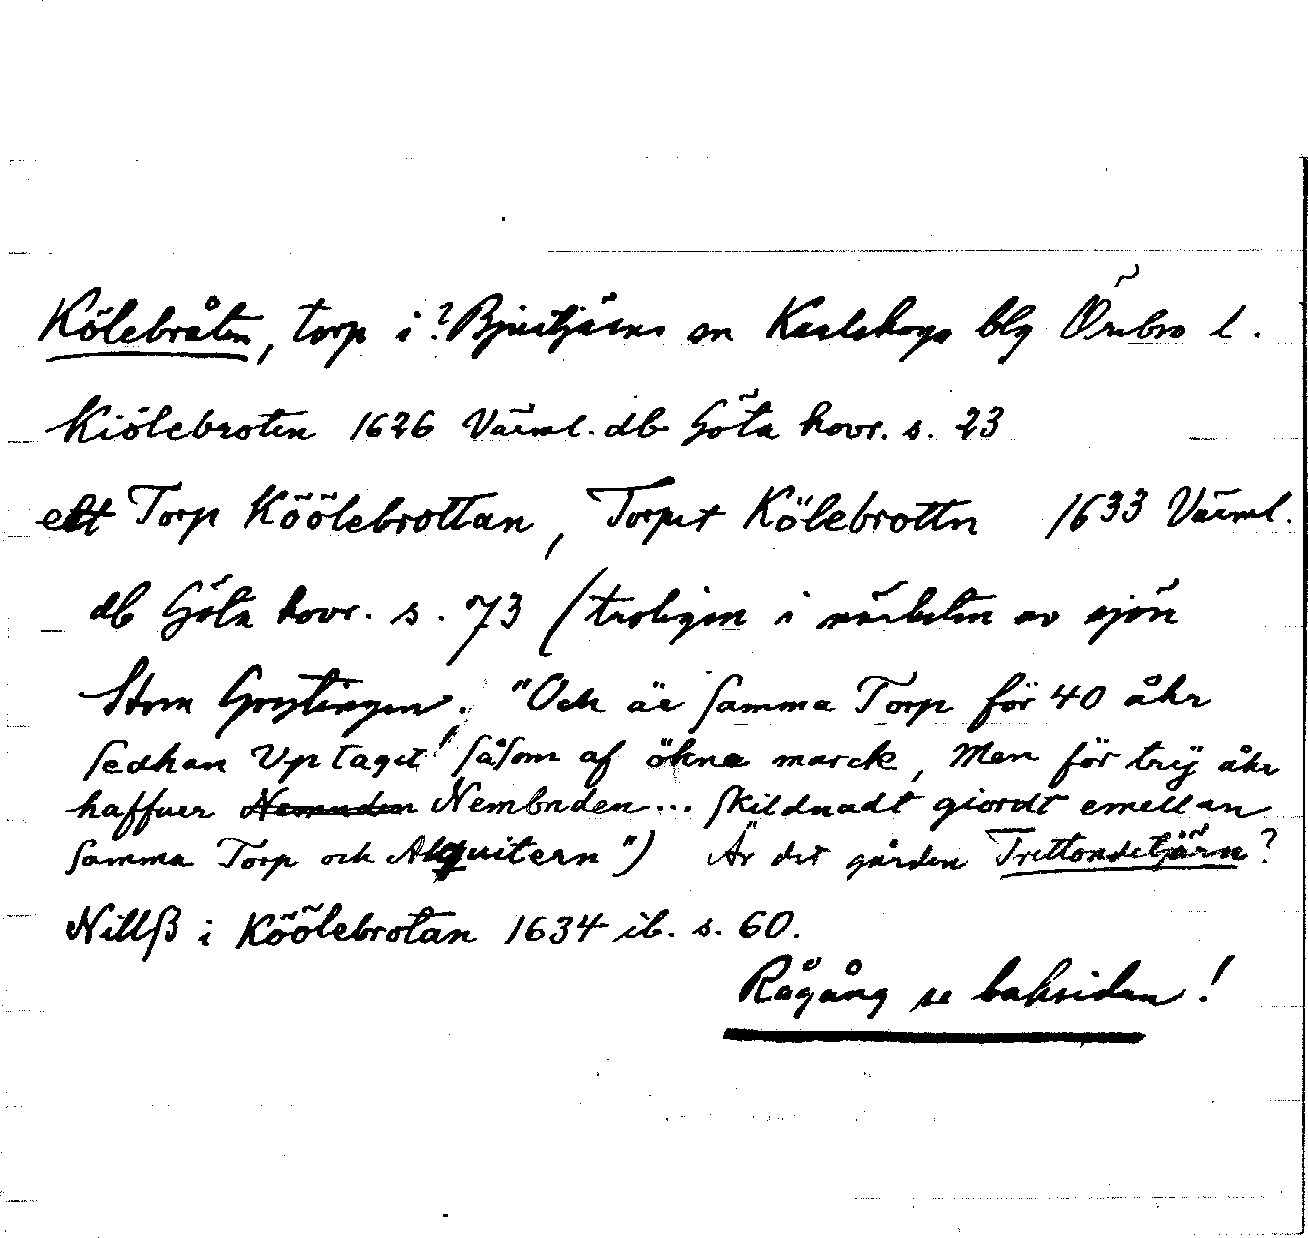 Kölebråten, torp i ? Bjurtjärns sn Karlskoga blg Örebro l.
Kiölebroten 1626 Värml. db Göta hovr. s. 23
ett Torp Köölebrottan, Torpet Kölebrottn 1633 Värml.
db Göta hovr. s. 73 (troligen i närheten av sjön
Stora Grytingen. "Och är samma Torp för 40 åhr
sedhan Vptaget! såsom af ökne marck, Men för trij åhr
haffuer Nemnden Nembnden... skildnadt giordt emellan
samma Torp och Alquitern") Är det gården Trettondetjärn?
Nillß i Köölebrotan 1634 ib. s. 60.
Rågång se baksidan!